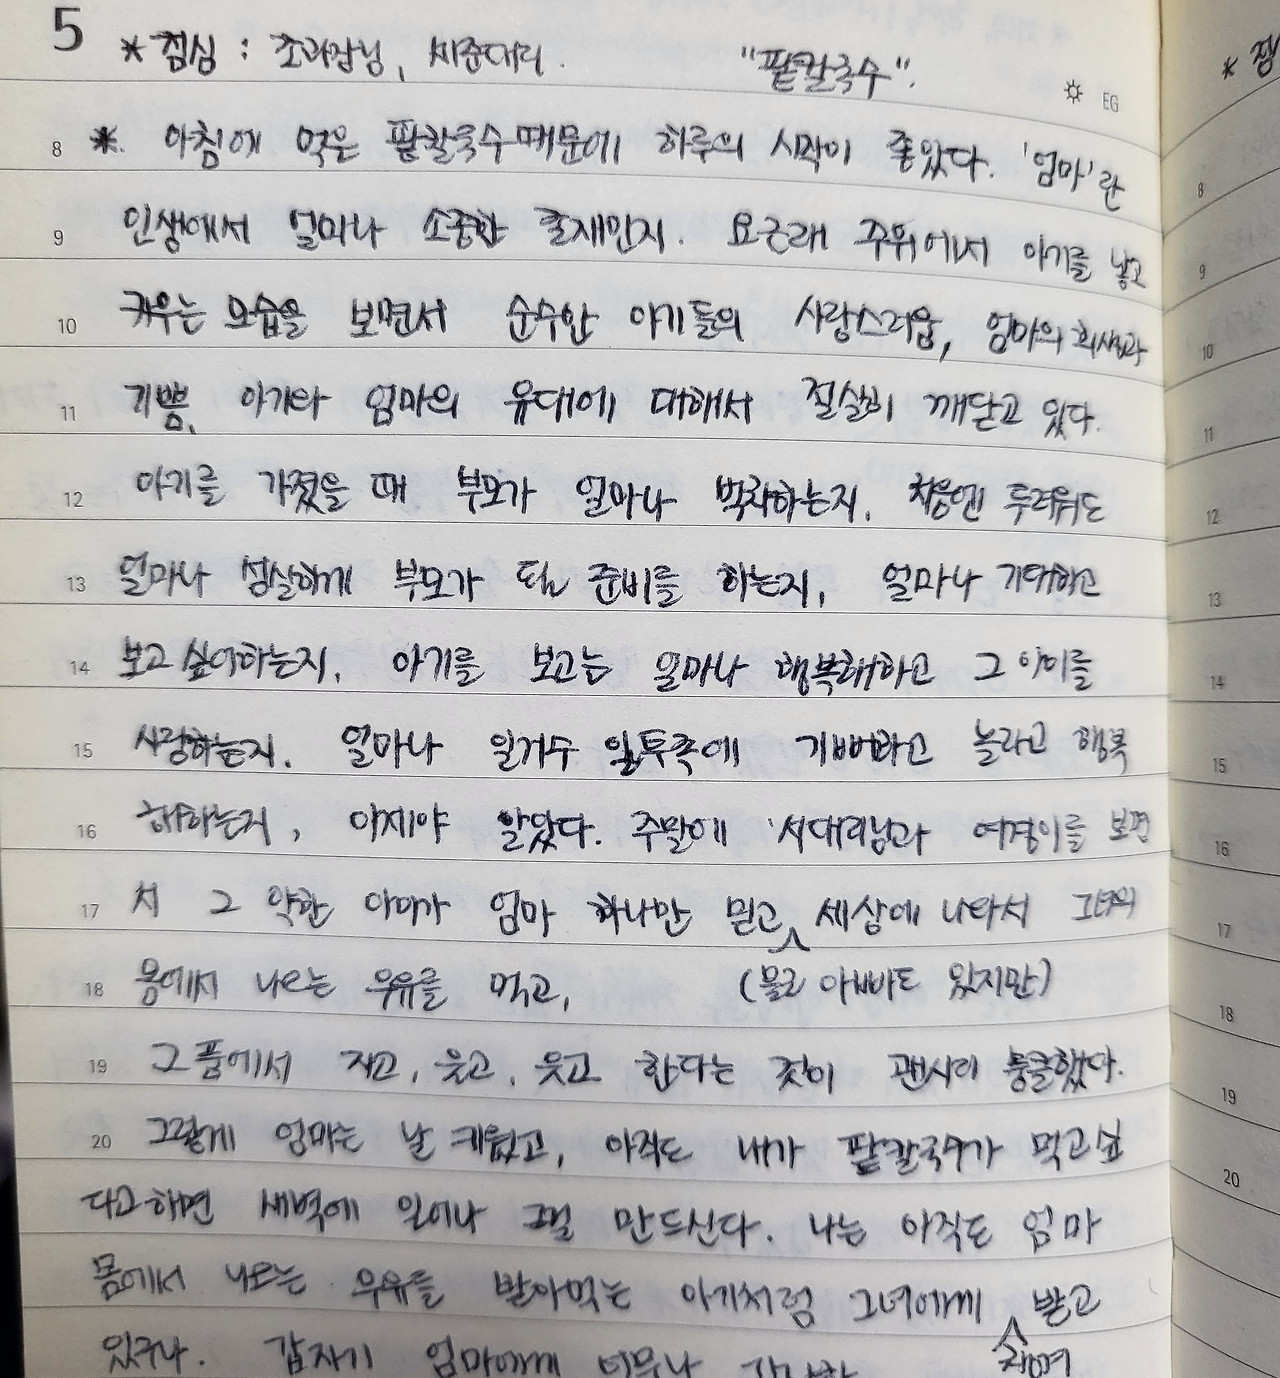 5
* 점심 : 조과장님, 세준대리. "팥칼국수".
EG
8 *. 아침에 먹은 팥칼국수때문에 하루의 시작이 좋았다. '엄마'란
9 인생에서 얼마나 소중한 존재인지. 요근래 주위에서 아기를 낳고
10 키우는 모습을 보면서 순수한 아기들의 사랑스러움, 엄마의
11 기쁨, 아기와 엄마의 유대에 대해서 절실히 깨닫고 있다.
12 아기를 가졌을 때 부모가 얼마나 벅차하는지, 처음엔 두려워도
13 얼마나 성실하게 부모가 될 준비를 하는지, 얼마나 기대하고
14 보고싶어하는지, 아기를 보고는 얼마나 행복해하고 그 아이를
15 사랑하는지. 얼마나 일거수 일투족에 기뻐하고 놀라고 행복
16 해하는지, 이제야 알았다. 주말에 서대리님과 여경이를 보면
17 서 그 약한 아이가 엄마 하나만 믿고 세상에 나타서 그녀의
18 몸에서 나오는 우유를 먹고, (물론 아빠도 있지만)
19 그 품에서 자고, 웃고, 웃고 한다는 것이 괜시리 뭉클했다.
20 그렇게 엄마는 날 키웠고, 아직도 내가 팥칼국수가 먹고싶
다고하면 새벽에 일어나 그걸 만드신다. 나는 아직도 엄마
몸에서 나오는 우유를 받아먹는 아기처럼 그녀에게 받고
있구나. 갑자기 엄마에게 너무나
8
9
10
11
12
13
14
15
16
17
18
19
20